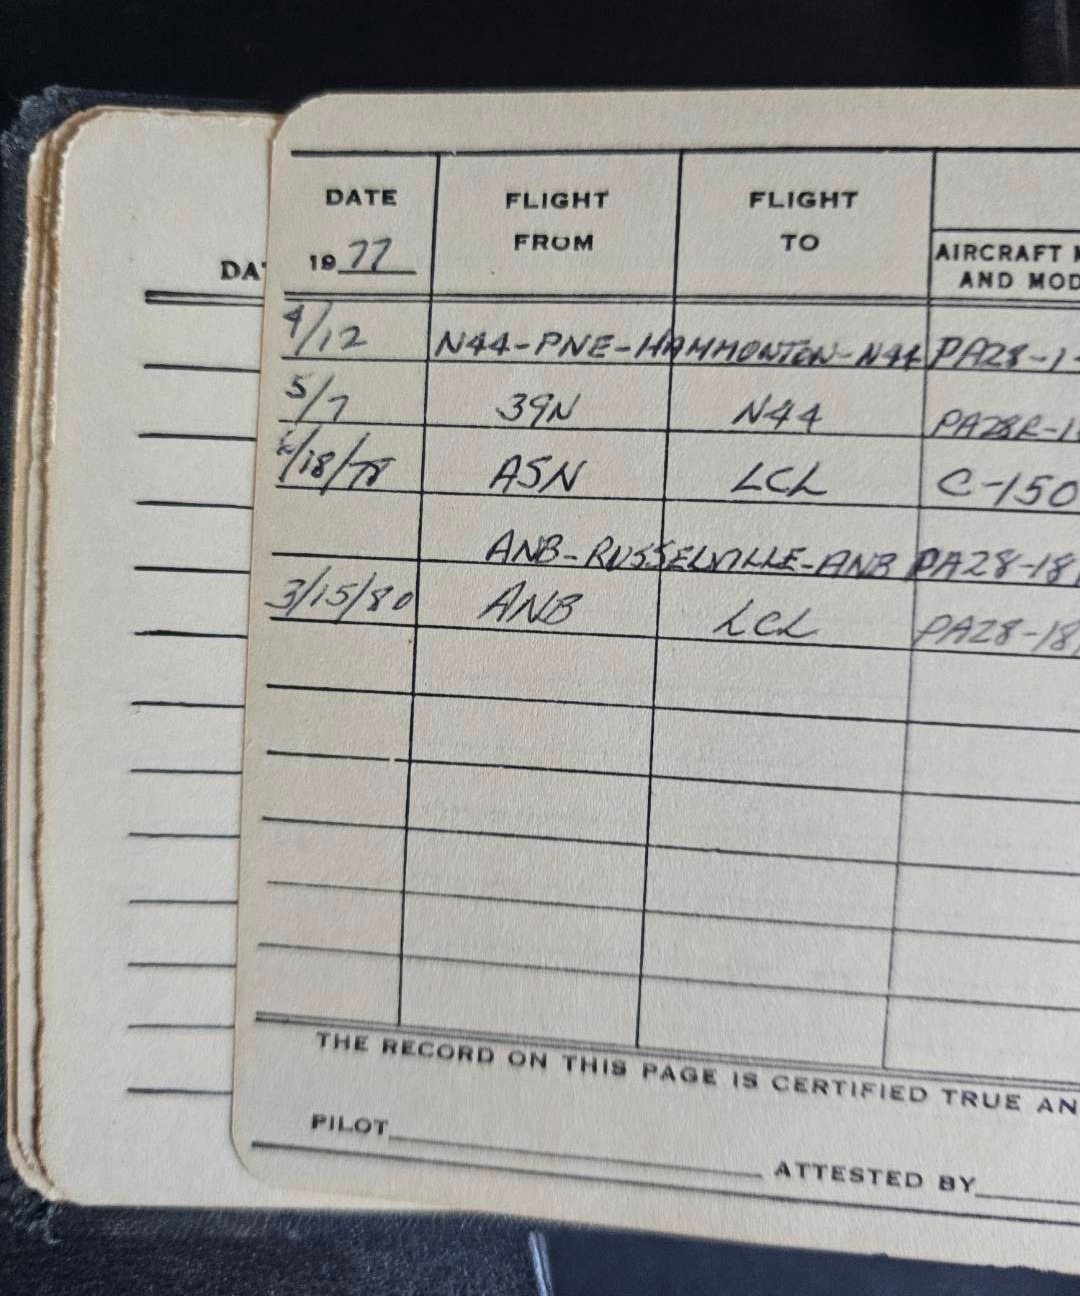 DATE FLIGHT FLIGHT
FROM TO AIRCRAFT
DA 19 77 AND MOD
4/12 N44-PNE-HAMMONTON-N44 PA28-1
5/7 39N N44 PA28R-1
/18/78 ASN LCL C-150
ANB-RUSSELVILLE-ANB PA28-18
3/15/80 ANB LCL PA28-18
THE RECORD ON THIS PAGE IS CERTIFIED TRUE AN
PILOT
ATTESTED BY